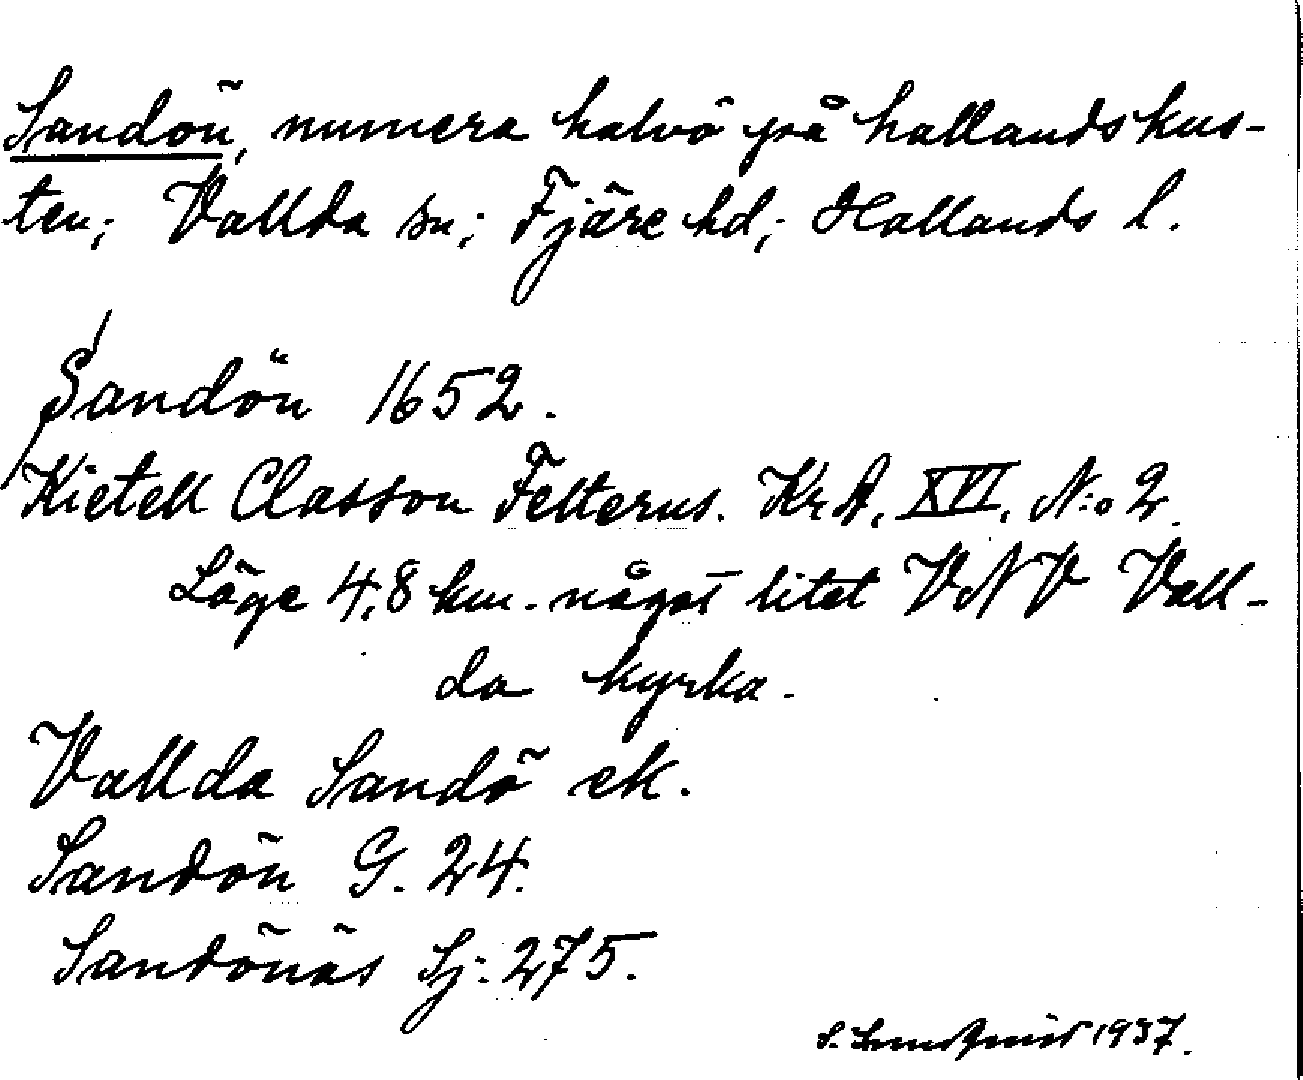 Sandön, numera halvö på hallandskus-
ten; Vallda sn; Fjäre hd; Hallands l.
Sandön 1652.
Kietell Classon Felterus. Kr. A. XVI. N:o 2.
Läge 4,8 km. något litet VNV Vall-
da kyrka.
Vallda Sandö ek.
Sandön G. 24.
Sandönäs Sj: 275.
S. Lundquist 1937.